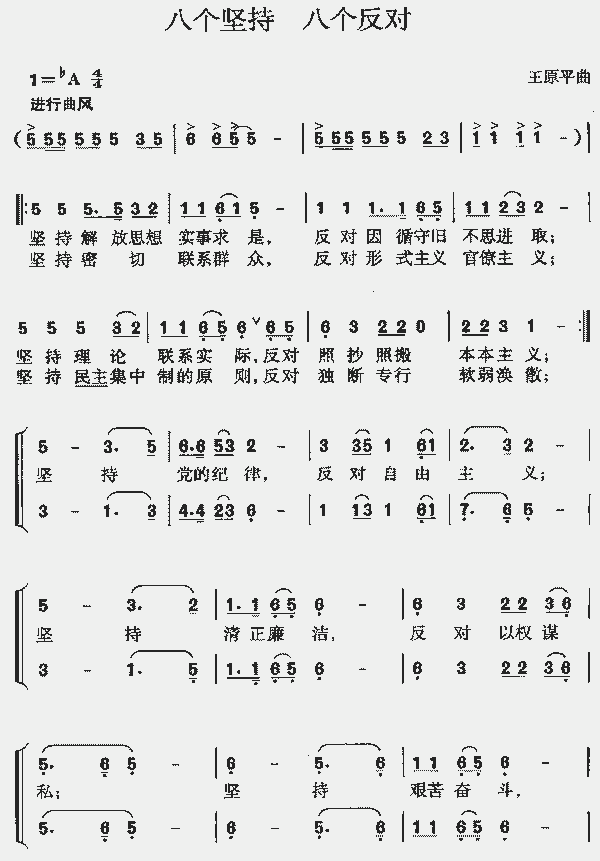 八个坚持　八个反对
1=♭A 4/4
王原平曲
进行曲风
(5 55 5 5 5 3 5 | 6 6 5 5 - | 5 55 5 5 5 2 3 | 1 1 1 1 - )|
‖: 5 5 5. 5 3 2 | 1 1 6 1 5 - | 1 1 1. 1 6 5 | 1 1 2 3 2 - |
坚持解 放思想 实事求 是， 反对因 循守旧 不思进 取；
坚持密 切 联系群 众， 反对形 式主义 官僚主 义；
5 5 5 3 2 | 1 1 6 5 6 ∨ 6 5 | 6 3 2 2 0 | 2 2 3 1 - :‖
坚持理 论 联系实 际，反对 照抄照搬 本本主义；
坚持民主集中 制的原 则，反对 独断专行 软弱涣 散；
5 - 3. 5 | 6.6 5 3 2 - | 3 3 5 1 6 1 | 2. 3 2 - |
坚 持 党的纪 律， 反对自由 主 义；
3 - 1. 3 | 4.4 2 3 6 - | 1 1 3 1 6 1 | 7. 6 5 - |
5 - 3. 2 | 1. 1 6 5 6 - | 6 3 2 2 3 6 |
坚 持 清正廉 洁， 反 对 以权谋
3 - 1. 5 | 1. 1 6 5 6 - | 6 3 2 2 3 6 |
5. 6 5 - | 6 - 5. 6 | 1 1 6 5 6 - |
私； 坚 持 艰苦奋 斗，
5. 6 5 - | 6 - 5. 6 | 1 1 6 5 6 - |